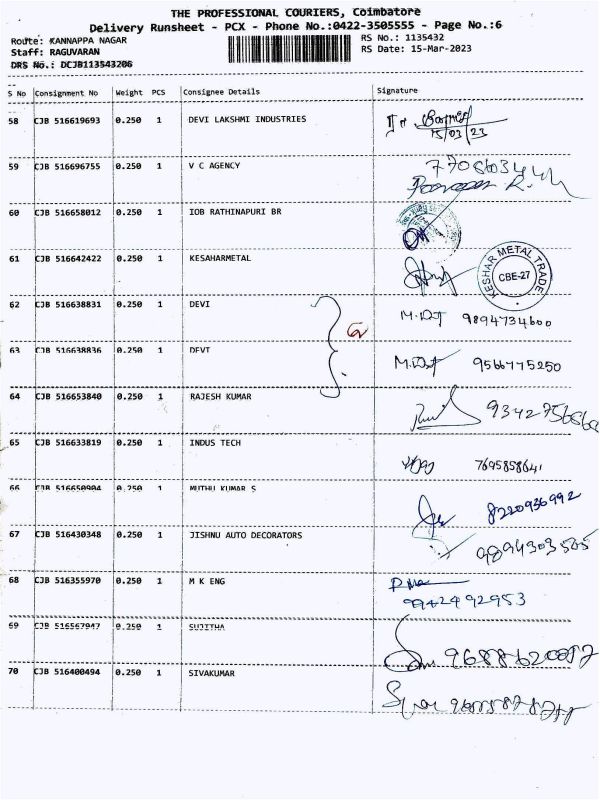 THE PROFESSIONAL COURIERS, Coimbatore
Delivery Runsheet - PCX - Phone No.:0422-3505555 - Page No.:6
Route: KANNAPPA NAGAR RS No.: 1135432
Staff: RAGUVARAN RS Date: 15-Mar-2023
DRS No.: DCJB113543206
S No Consignment No Weight PCS Consignee Details Signature
58 CJB 516619693 0.250 1 DEVI LAKSHMI INDUSTRIES
15/03/23
59 CJB 516696755 0.250 1 V C AGENCY
60 CJB 516658012 0.250 1 IOB RATHINAPURI BR
61 CJB 516642422 0.250 1 KESAHARMETAL KESHAR METAL TRADE CBE-27
62 CJB 516638831 0.250 1 DEVI 9894734600
63 CJB 516638836 0.250 1 DEVI 9566775250
64 CJB 516653840 0.250 1 RAJESH KUMAR
65 CJB 516633819 0.250 1 INDUS TECH 7695858641
66 CJB 516650904 0.250 1 MUTHU KUMAR S 8220936992
67 CJB 516430348 0.250 1 JISHNU AUTO DECORATORS 9894303505
68 CJB 516355970 0.250 1 M K ENG
9942492953
69 CJB 516567947 0.250 1 SUJITHA
70 CJB 516400494 0.250 1 SIVAKUMAR